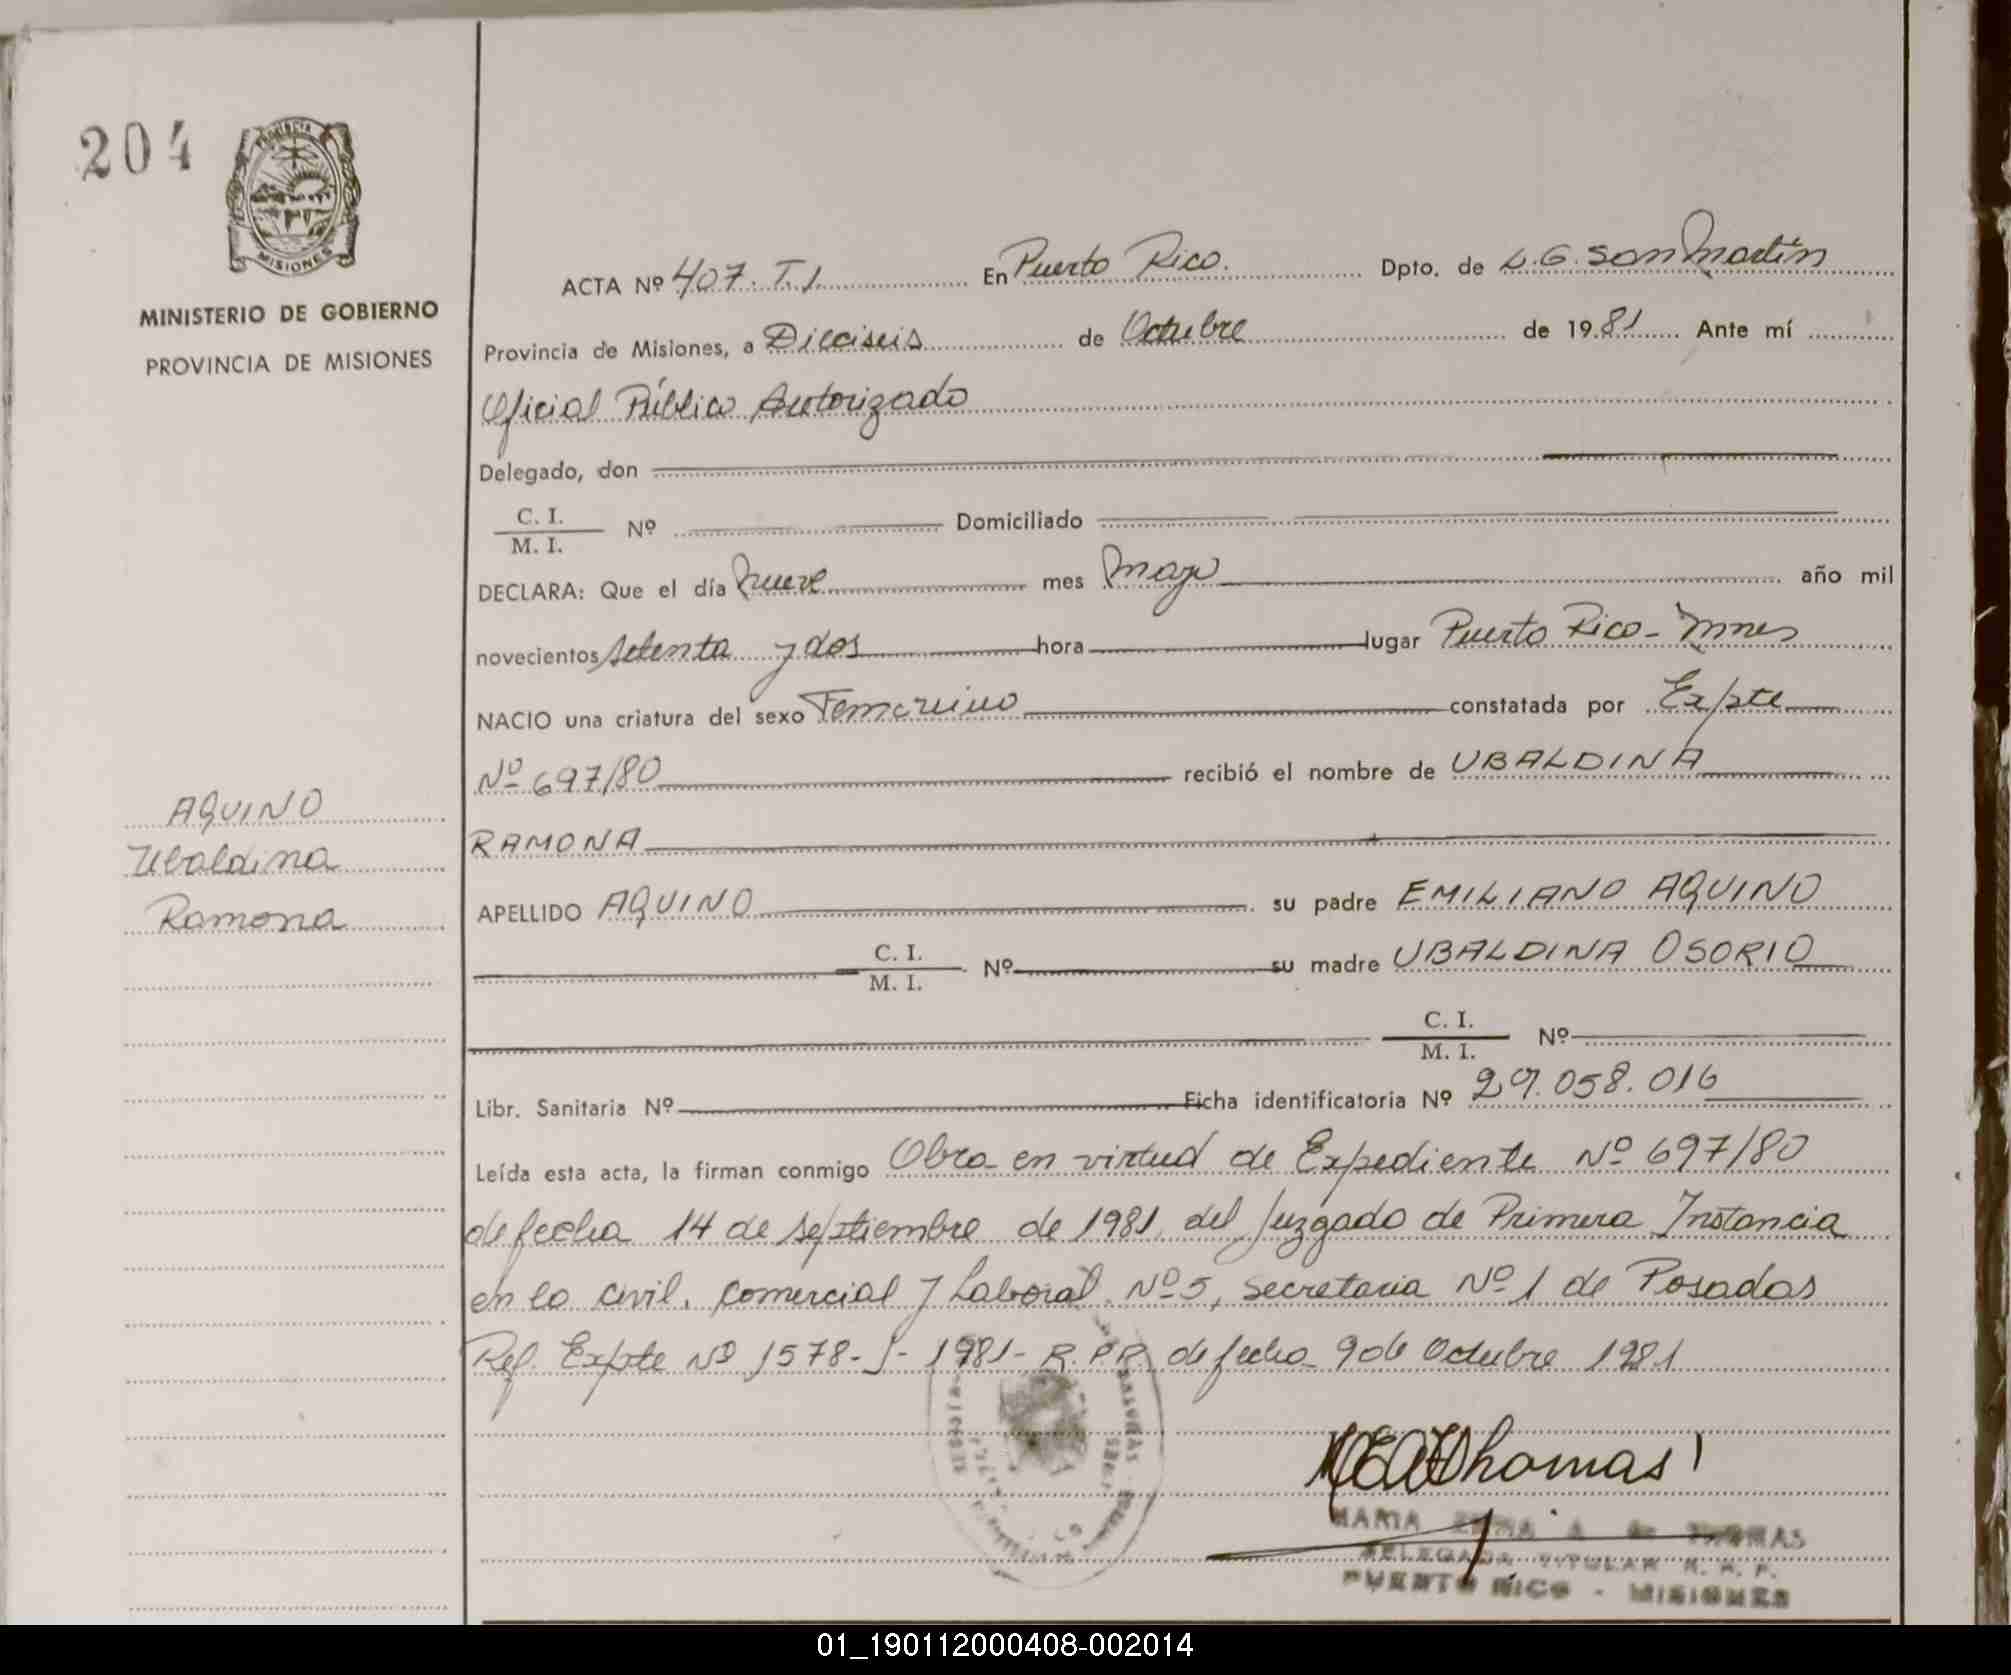 204
Provincia
MISIONES
MINISTERIO DE GOBIERNO
PROVINCIA DE MISIONES
AQUINO
Ubaldina
Ramona
ACTA Nº 407. T.I. En Puerto Rico. Dpto. de L.G. San Martín
Provincia de Misiones, a Dieciseis de Octubre de 1981 Ante mí
Oficial Público Autorizado
Delegado, don
C. I.
M. I. Nº Domiciliado
DECLARA: Que el día nueve mes mayo año mil
novecientos setenta y dos hora lugar Puerto Rico - Mnes
NACIO una criatura del sexo Femenino constatada por Expte
Nº 697/80 recibió el nombre de UBALDINA
RAMONA
APELLIDO AQUINO su padre EMILIANO AQUINO
C. I.
M. I. Nº su madre UBALDINA OSORIO
C. I.
M. I. Nº
Libr. Sanitaria Nº Ficha identificatoria Nº 29.058.016
Leída esta acta, la firman conmigo Obra en virtud de Expediente Nº 697/80
de fecha 14 de septiembre de 1981 del Juzgado de Primera Instancia
en lo civil, comercial y Laboral Nº 5, secretaria Nº 1 de Posadas
Ref. Expte Nº 1578-J-1981- R.P.P. de fecha 9 de Octubre 1981
Thomas
MARIA THOMAS
DELEGADA TITULAR
PUERTO RICO - MISIONES
01_190112000408-002014